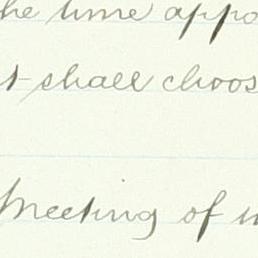 he time appo
t shall choos
Meeting of